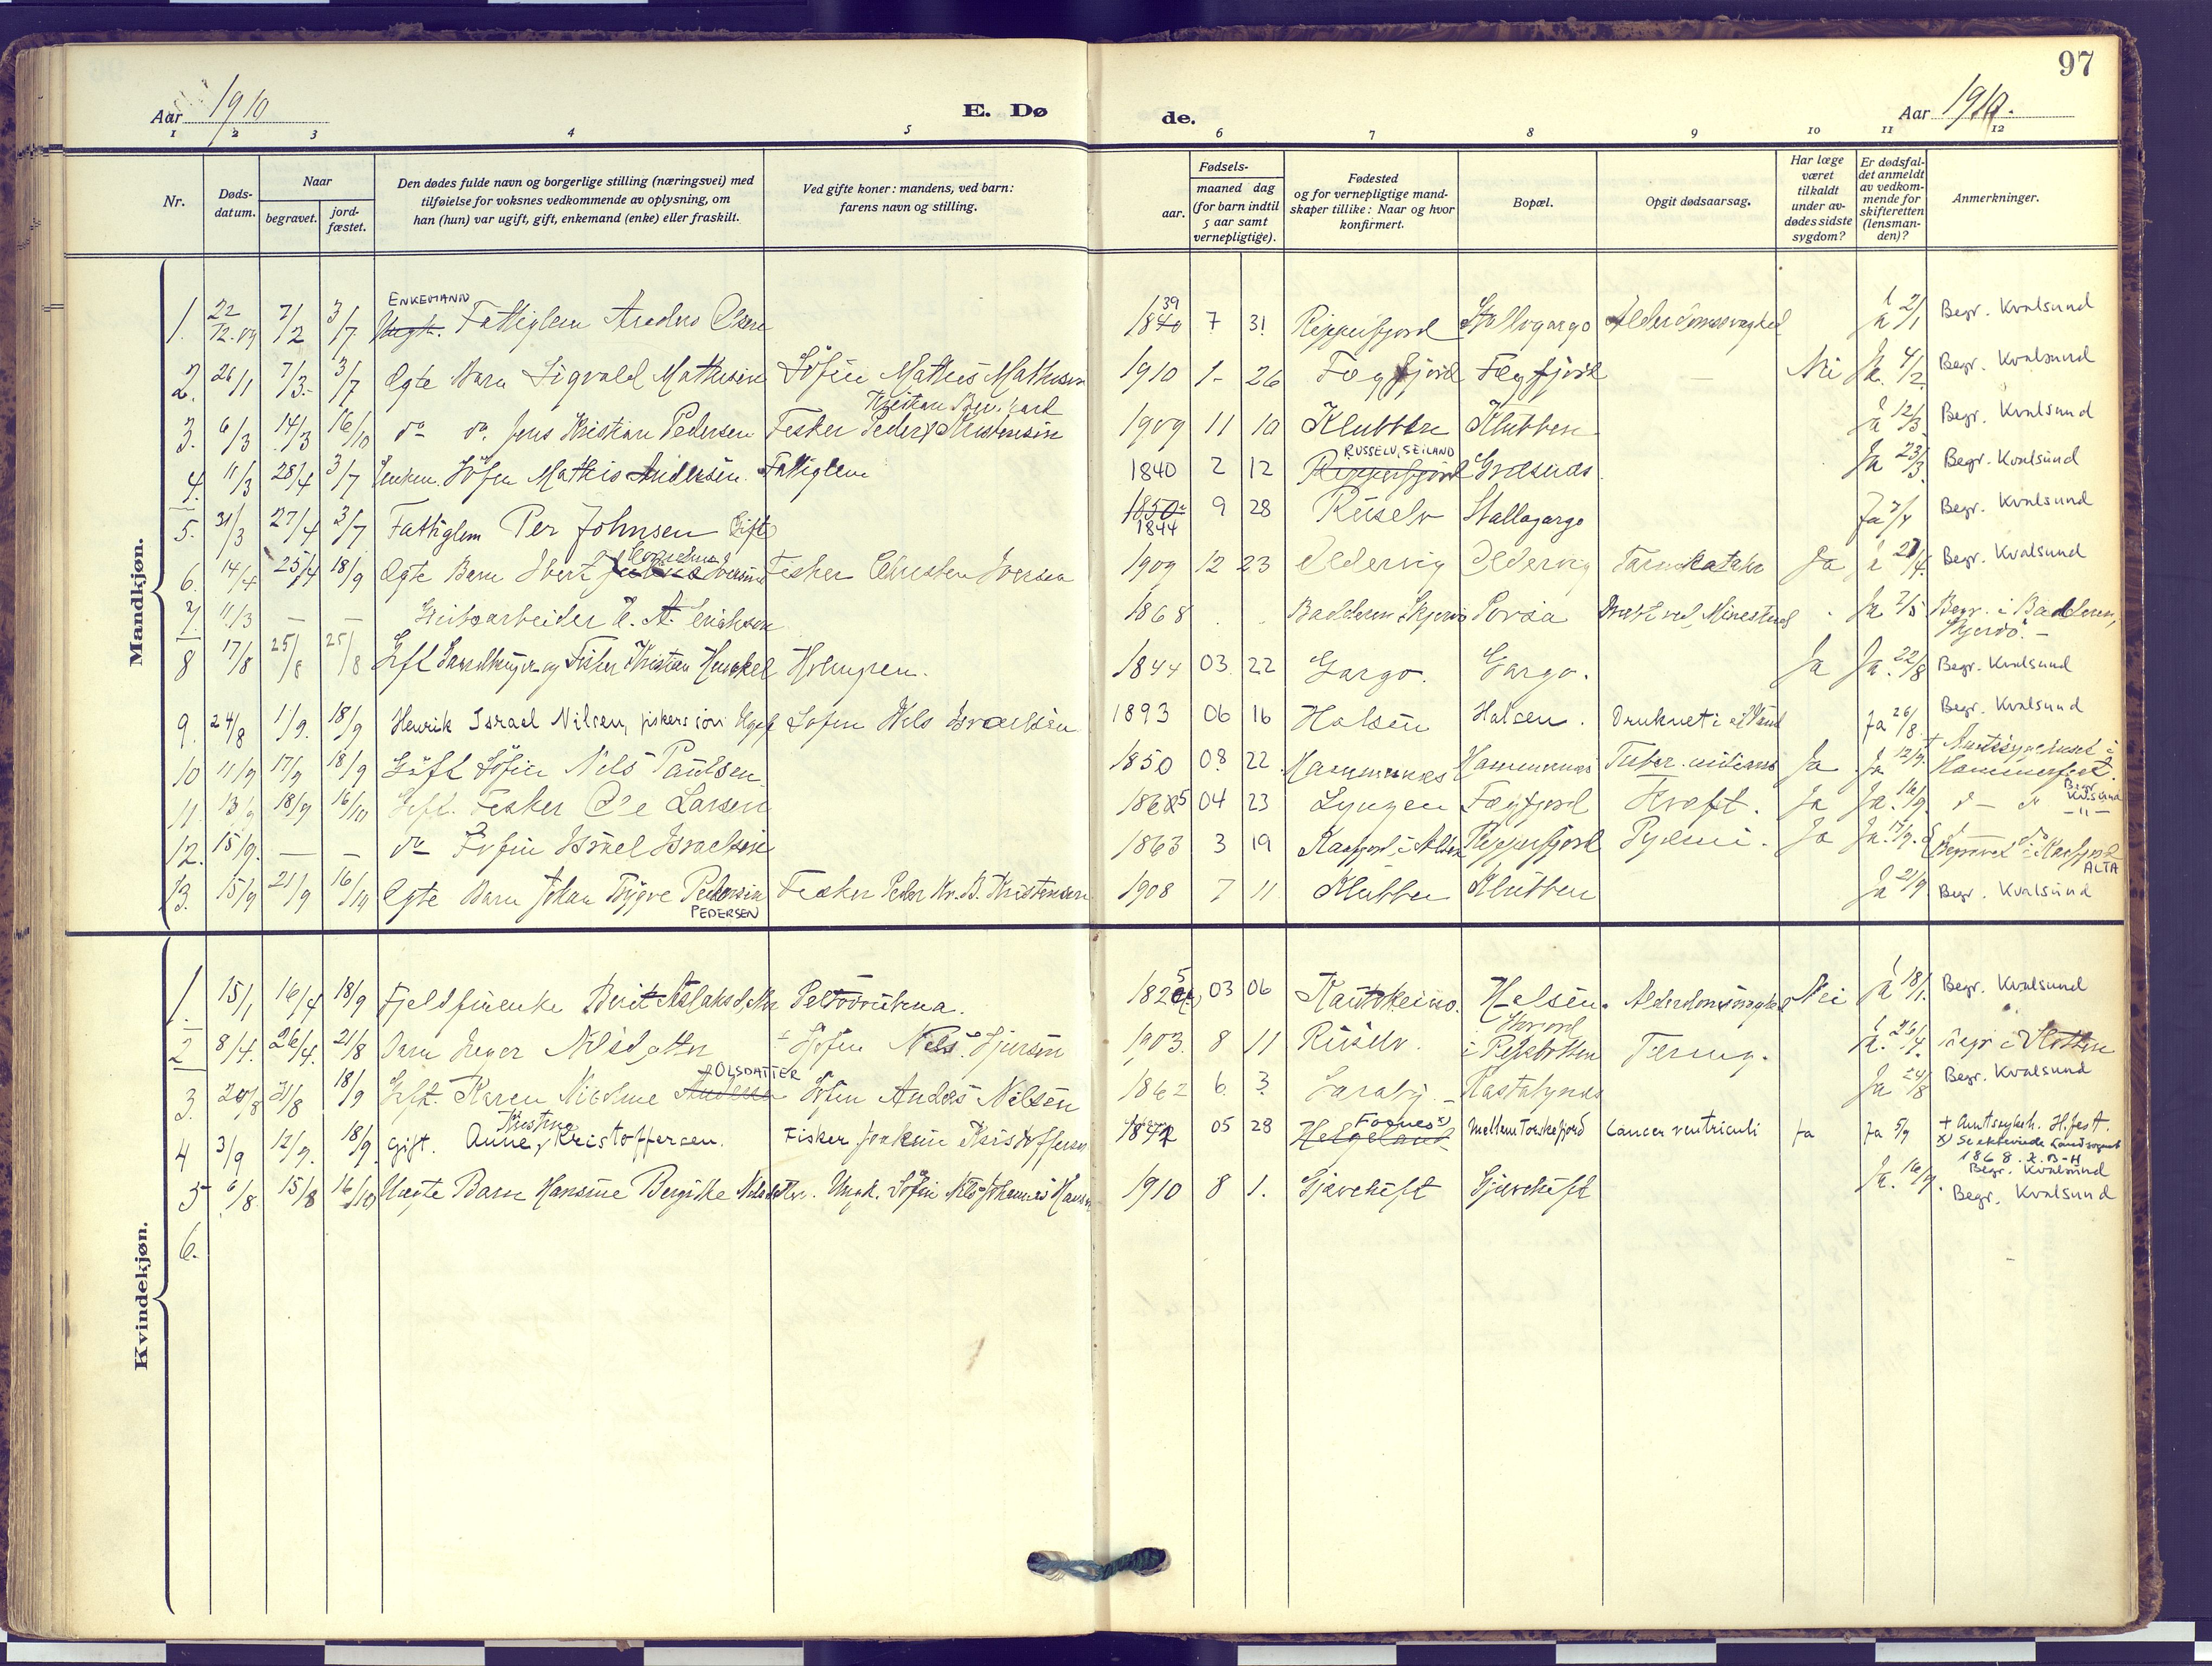 97
Aar 1910
E. Dø
de.
Aar 1910.
1 2 3 4 5 6 7 8 9 10 11 12
Nr.
Døds-datum.
Naar
begravet.
jord-fæstet.
Den dødes fulde navn og borgerlige stilling (næringsvei) med
tilføielse for voksnes vedkommende av oplysning, om
han (hun) var ugift, gift, enkemand (enke) eller fraskilt.
Ved gifte koner: mandens, ved barn:
farens navn og stilling.
Fødsels-
aar.
maaned dag
(for barn indtil
5 aar samt
vernepligtige).
Fødested
og for vernepligtige mand-
skaper tillike: Naar og hvor
konfirmert.
Bopæl.
Opgit dødsaarsag.
Har læge
været
tilkaldt
under av-
dødes sidste
sygdom?
Er dødsfal-
det anmeldt
av vedkom-
mende for
skifteretten
(lensman-
den)?
Anmerkninger.
Mandkjøn.
ENKEMAND
1. 22/12.09 7/2 3/7 Fattiglem Anders Olsen 1840 39 7 31 Repperfjord Alderdomssvaghed Ja 2/1 Begr. Kvalsund
2. 26/1 7/3 3/7 Ægte Barn Sigvald Mathisen Søfin Mathis Mathisen 1910 1- 26 Fægfjord Fægfjord — Nei Ja. 4/2 Begr. Kvalsund
3. 6/3 14/3 16/10 do do. Jens Kristian Pedersen Fisker Peder Kristensen 1909 11 10 Klubben Klubben Ja 12/3 Begr. Kvalsund
RUSSELV, SEILAND
4. 11/3 28/4 3/7 Søfin Mathis Andersen. Fattiglem 1840 2 12 Repperfjord Ja 23/3 Begr. Kvalsund
5. 31/3 27/4 3/7 Fattiglem Per Johnsen Gift 1850 1844 9 28 Ruselv Stallogargo Ja Begr. Kvalsund
6. 14/4 25/4 18/9 Ægte Barn Iversen Fisker Christen Iversen 1909 12 23 Oldervig Oldervig Tarmkatahr Ja 27/4 Begr. Kvalsund
7. 11/3 — — E. A. Eriksen 1868 Badderen Skjervø Porsa Ja 7/5 Begr. i Badderen,
Skjervø. —
8 17/8 25/8 25/8 Gift Fisker Kristian Henrikel Holmgren. 1844 03 22 Gargo. Gargo. Ja Ja. 22/8 Begr. Kvalsund
9. 24/8 1/9. 18/9 Henrik Israel Nilsen, fiskers søn Ugift Søfin Nils Israelsen 1893 06 16 Halsen Halsen. Druknet i Ja 26/8 Begr. Kvalsund
10 11/9 17/9 18/9 Gift Søfin Nils Paulsen 1850 08 22 Hammernes Hammernes Ja Ja 12/9 + Amtssygehuset i
Hammerfest.
11. 13/9 18/9 16/10 Gift. Fisker Ole Larsen 1865 04 23 Lyngen Fægfjord Kræft. Ja Ja. 16/9 Begr. Kvalsund
12. 15/9. — — do Søfin Israel Israelsen 1863 3 19 Kaafjord i Alten Repperfjord Pyæmi. Ja Ja. 17/9. Begravet i Kaafjord
ALTA
13. 15/9 21/9 16/10 Ægte Barn Johan Trygve Pedersen Fisker Peder Kr. B. Kristensen 1908 7 11 Klubben Klubben Ja 21/9 Begr. Kvalsund
PEDERSEN
Kvindekjøn.
1. 15/1 16/4 18/9 Fjeldfinenke Berit Aslaksdatter 1825 03 06 Kautokeino. Halsen. Alderdomssvaghed Nei Ja 18/1. Begr. Kvalsund
2 8/4. 26/4. 21/8 Barn Inger Nilsdatter Søfin Nils 1903. 8 11 Ruselv. Tæring.
OLSDATTER
3. 20/8 31/8 18/9 Gift. Karen Nicoline Søfin Anders Nilsen 1862 6 3 Saraby. Ja 24/8 Begr. Kvalsund
Kristine Fognes x)
4 3/9 12/9. 18/9. gift. Anne Kristoffersen. Fisker Joakim Kristoffersen 1842 05 28 Helgeland Mellem Torskefjord Cancer ventriculi Ja Ja 5/9 + Amtssykeh. H.fest.
1868.
Begr. Kvalsund
5 6/8 15/8 16/10 Uægte Barn Hansine Bergitte Nilsdatter. Ungk. Søfin Nils Johannes Hansen 1910 8 1. Ja. 16/9. Begr. Kvalsund
6.